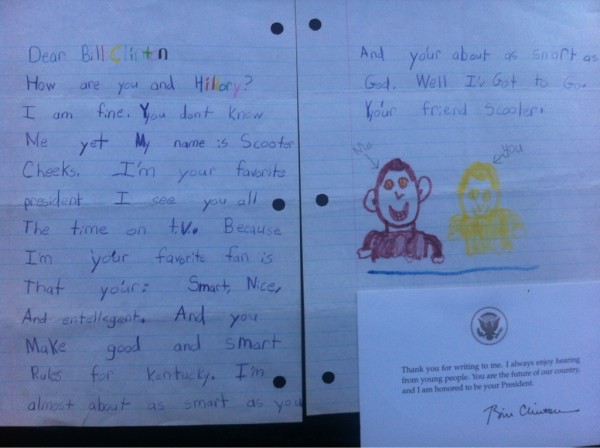 Dear Bill Clinton
How are you and Hillory?
I am fine. You dont know
Me yet My name is Scooter
Cheeks. I'm your favorite
president I see you all
The time on tv. Because
I'm your favorite fan is
That your: Smart, Nice,
And entellegent. And you
Make good and smart
Rules for Kentucky. I'm
almost about as smart as you
And your about as smart as
God. Well I'v Got to Go.
Your friend Scooter.
Me
you
Thank you for writing to me. I always enjoy hearing
from young people. You are the future of our country,
and I am honored to be your President.
Bill Clinton